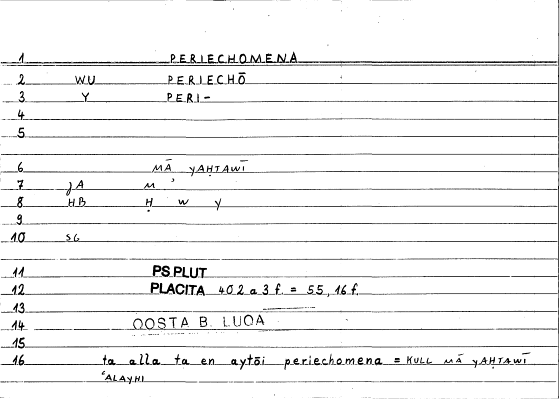 1 PERIECHOMENA
2 WU PERIECHŌ
3 Y PERI-
4
5
6 MĀ YAḤTAWĪ
7 JA M ʾ
8 HB Ḥ W Y
9
10 SG
11 PS.PLUT
12 PLACITA 402 a 3 f. = 55, 16 f.
13
14 QOSTA B. LUQA
15
16 ta alla ta en aytōi periechomena = KULL MĀ YAḤTAWĪ
ʿALAYHI